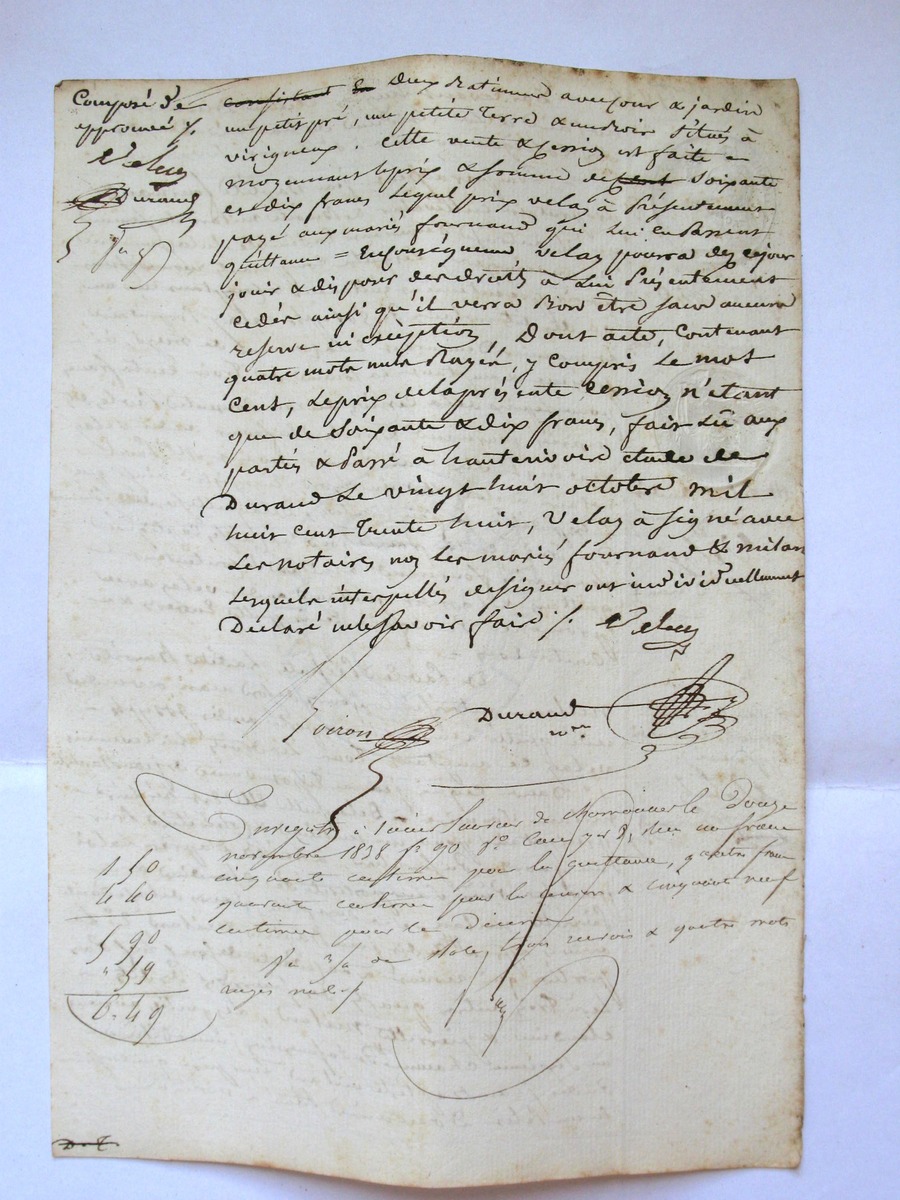 Composé De
approuvé ./.
Velay
Durand
consistant en Deux Batimens avec cour & jardin
un petit pré, une petite Terre & un Situés à
virigneux. Cette vente & cession est faite =
moyennant le prix & somme de cent Soixante
et dix francs Lequel prix velay à Présentement
payé aux mariés fournand qui Lui en Passent
quittance = En conséquence velay pourra dez cejour
jouir & disposer des droits à Lui Présentement
cedés ainsi qu'il verra Bon être sans aucune
reserve ni exception, Dont acte, Contenant
quatre mots nuls Rayés, y compris Le mot
Cent, Le prix de la présente Cession n'étant
que de Soixante & dix francs, fait Lû aux
partiés & Passé à hauterivoire étude de
Durand Le vingt huit octobre mil
huit cent Trente huit, Velay à signé avec
Les notaires non les mariés fournand & milan
Lesquels interpellés de signer ont individuellement
Déclaré ne le savoir faire ./. Velay
Voiron
Durand
nre
Enregistré à Laurent de chamousset le Douze
novembre 1838 fo 90 Ro Cases 7 et 8, reçu un franc
cinquante centimes pour la quittance, quatre francs
quarante centimes pour la cession & cinquante neuf
centimes pour le Décime
de trois renvois & quatre mots
rayés nuls
1 50
4 40
5 90
" 59
6. 49